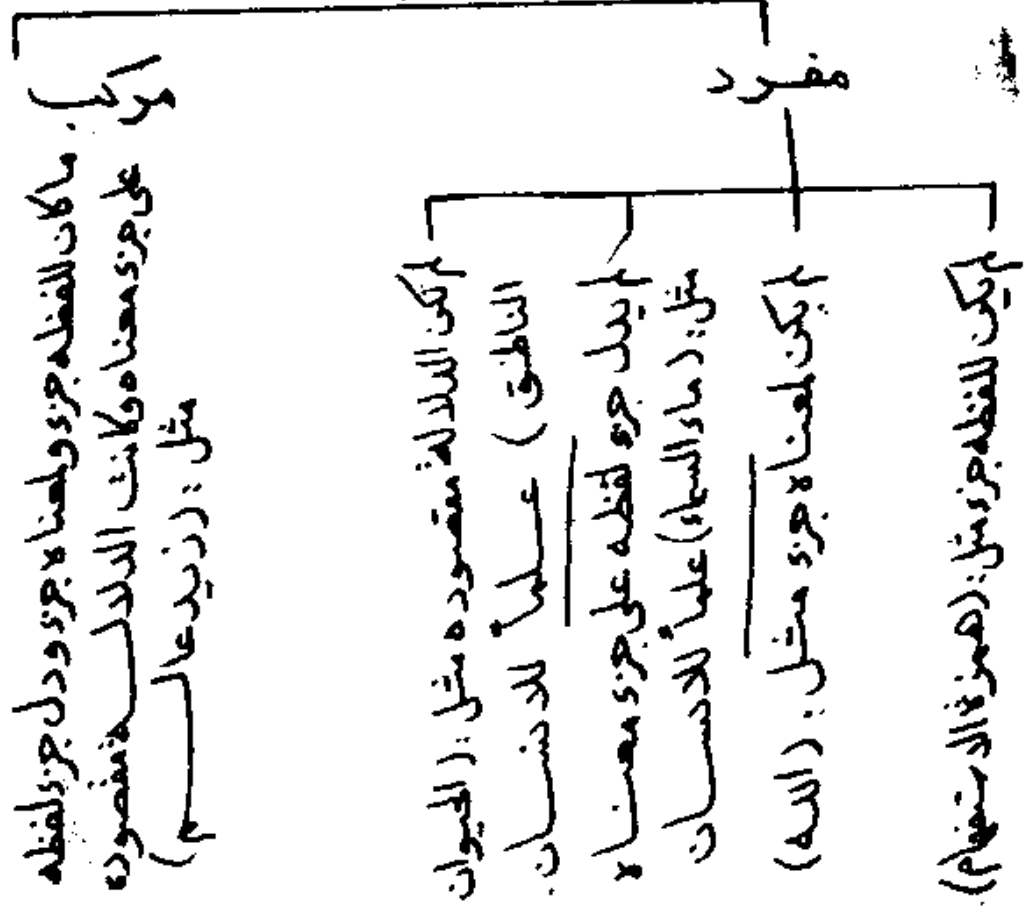 مفرد
مركب
لم يكن للفظه جزء مثل: (همزة الاستفهام).
لم يكن لمعناه جزء مثل: (الله)
لم يدل جزء لفظه على جزء معناه
مثل: (ماء السماء) علماً للانسان
لم تكن الدلالة مقصوده مثل: (الحيوان
الناطق) علماً للانسان.
ما كان للفظه جزء ولمعناه جزء ودل جزء لفظه
على جزء معناه وكانت الدلالة مقصوده
مثل: (زيد عالم)